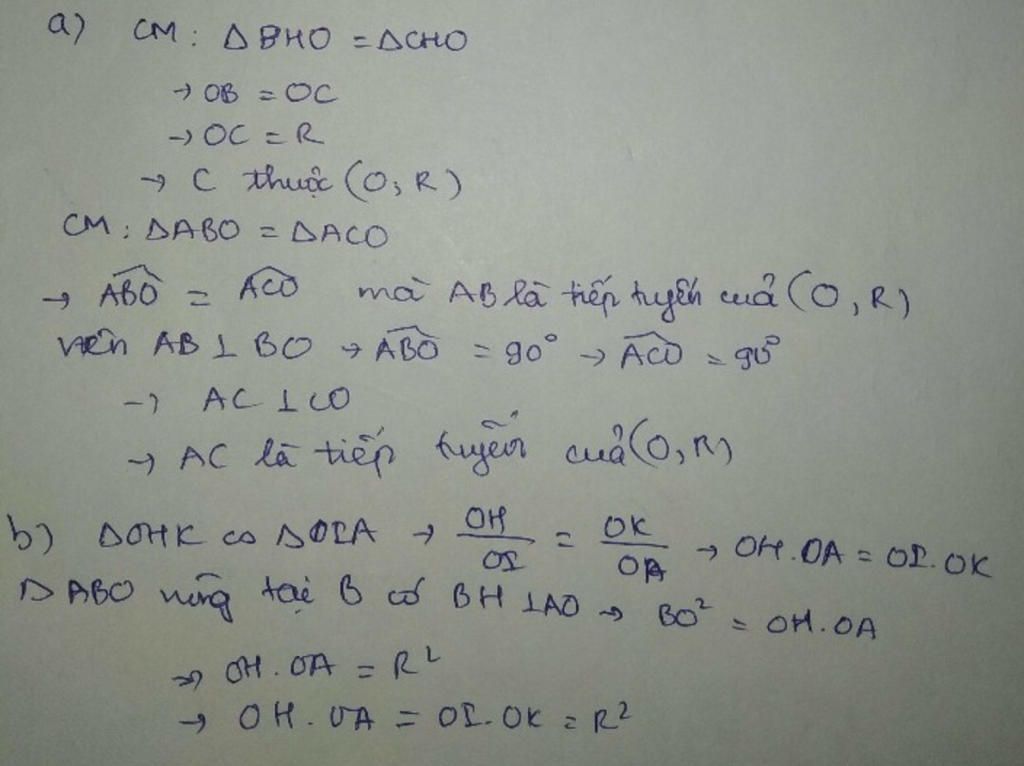 a) CM : ΔBHO = ΔCHO
→ OB = OC
→ OC = R
→ C thuộc (O; R)
CM : ΔABO = ΔACO
→ \widehat{ABO} = \widehat{ACO} mà AB là tiếp tuyến của (O, R)
nên AB ⊥ BO → \widehat{ABO} = 90° → \widehat{ACO} = 90°
→ AC ⊥ CO
→ AC là tiếp tuyến của (O, R)
b) ΔOHK ∽ ΔOIA → OH/OI = OK/OA → OH.OA = OI.OK
ΔABO vuông tại B có BH ⊥ AO → BO² = OH.OA
⇒ OH.OA = R²
→ OH.OA = OI.OK = R²